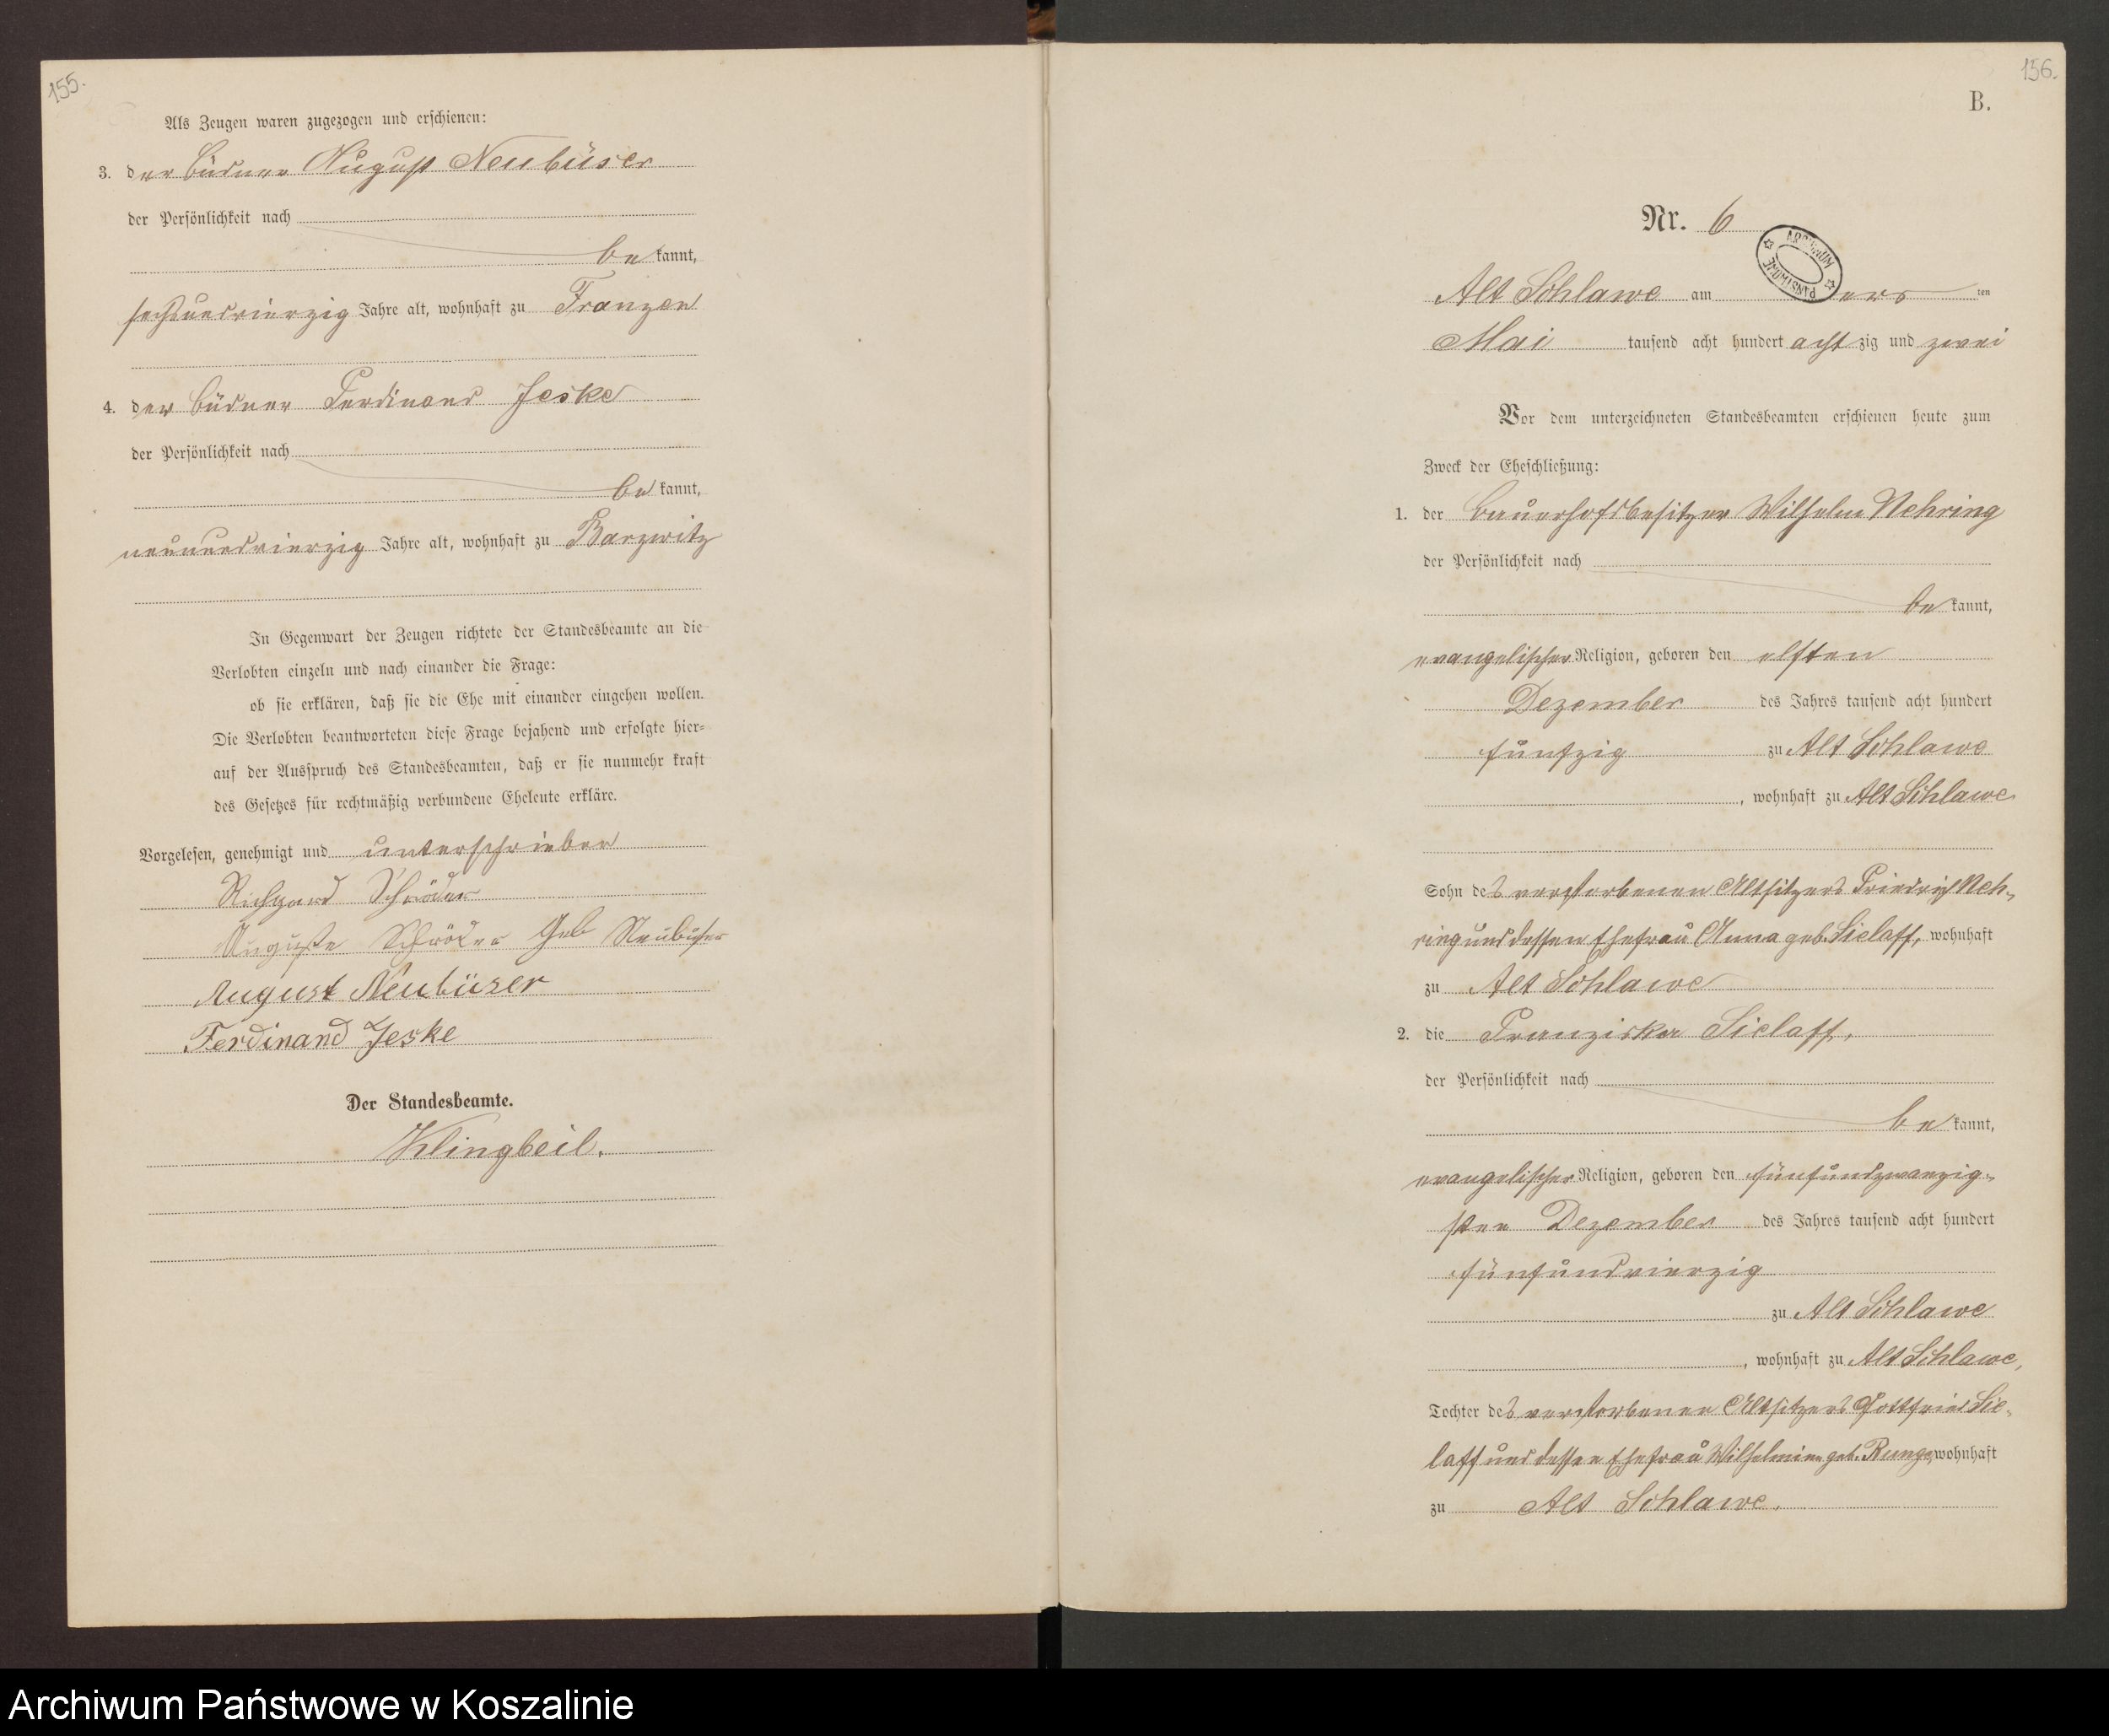 155.
Als Zeugen waren zugezogen und erschienen:
3. der Büdner August Neubüser
der Persönlichkeit nach
be kannt,
sechsundvierzig Jahre alt, wohnhaft zu Franzen
4. der Büdner Ferdinand Jeske
der Persönlichkeit nach
be kannt,
neunundvierzig Jahre alt, wohnhaft zu Barzwitz
In Gegenwart der Zeugen richtete der Standesbeamte an die
Verlobten einzeln und nach einander die Frage:
ob sie erklären, daß sie die Ehe mit einander eingehen wollen.
Die Verlobten beantworteten diese Frage bejahend und erfolgte hier=
auf der Ausspruch des Standesbeamten, daß er sie nunmehr kraft
des Gesetzes für rechtmäßig verbundene Eheleute erkläre.
Vorgelesen, genehmigt und unterschrieben
Richard Schröder
Auguste Schröder Geb Neubüser
August Neubüser
Ferdinand Jeske
Der Standesbeamte.
Klingbeil.
156.
B.
Nr. 6
ARCHIWUM PAŃSTWOWE
Alt Schlawe am ers ten
Mai tausend acht hundert acht zig und zwei
Vor dem unterzeichneten Standesbeamten erschienen heute zum
Zweck der Eheschließung:
1. der Bauerhofsbesitzer Wilhelm Nehring
der Persönlichkeit nach
be kannt,
evangelischer Religion, geboren den elften
Dezember des Jahres tausend acht hundert
fünfzig zu Alt Schlawe
, wohnhaft zu Alt Schlawe
Sohn des verstorbenen Altsitzers Friedrich Neh-
ring und dessen Ehefrau Anna geb. Sielaff, wohnhaft
zu Alt Schlawe
2. die Franziska Sielaff,
der Persönlichkeit nach
be kannt,
evangelischer Religion, geboren den fünfundzwanzig-
sten Dezember des Jahres tausend acht hundert
fünfundvierzig
zu Alt Schlawe
, wohnhaft zu Alt Schlawe,
Tochter des verstorbenen Altsitzers Gottfried Sie-
laff und dessen Ehefrau Wilhelmine geb. Runge, wohnhaft
zu Alt Schlawe.
Archiwum Państwowe w Koszalinie